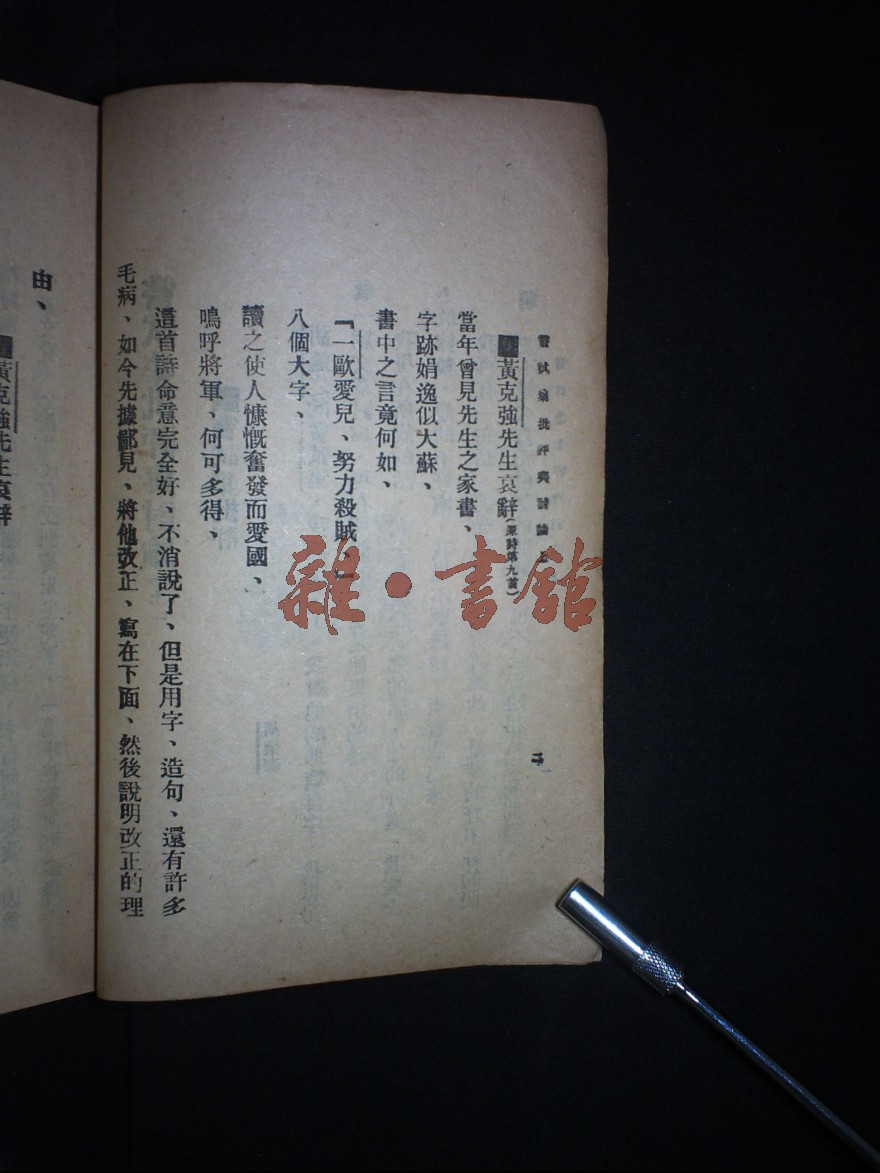 嘗試集批評與討論
黃克強先生哀辭(原詩第九首)
當年曾見先生之家書、
字跡娟逸似大蘇、
書中之言竟何如、
『一歐愛兒、努力殺賊、』
八個大字、
讀之使人慷慨奮發而愛國、
嗚呼將軍、何可多得、
這首詩命意完全好、不消說了、但是用字、造句、還有許多
毛病、如今先據鄙見、將他改正、寫在下面、然後說明改正的理
由、
黃克強先生哀辭
雜·書館